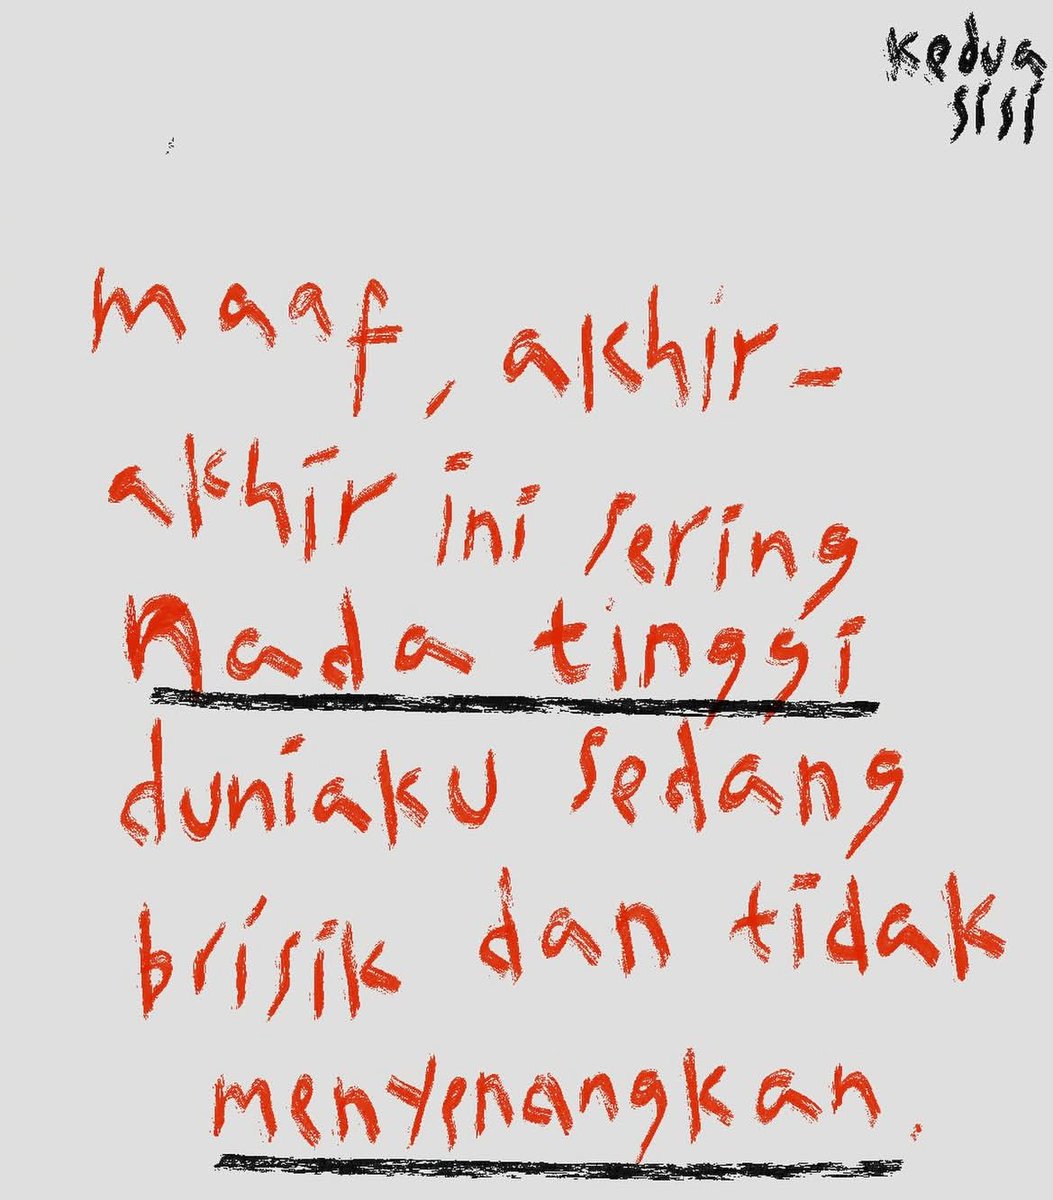 kedua
sisi
maaf, akhir-
akhir ini sering
Nada tinggi
duniaku sedang
brisik dan tidak
menyenangkan.